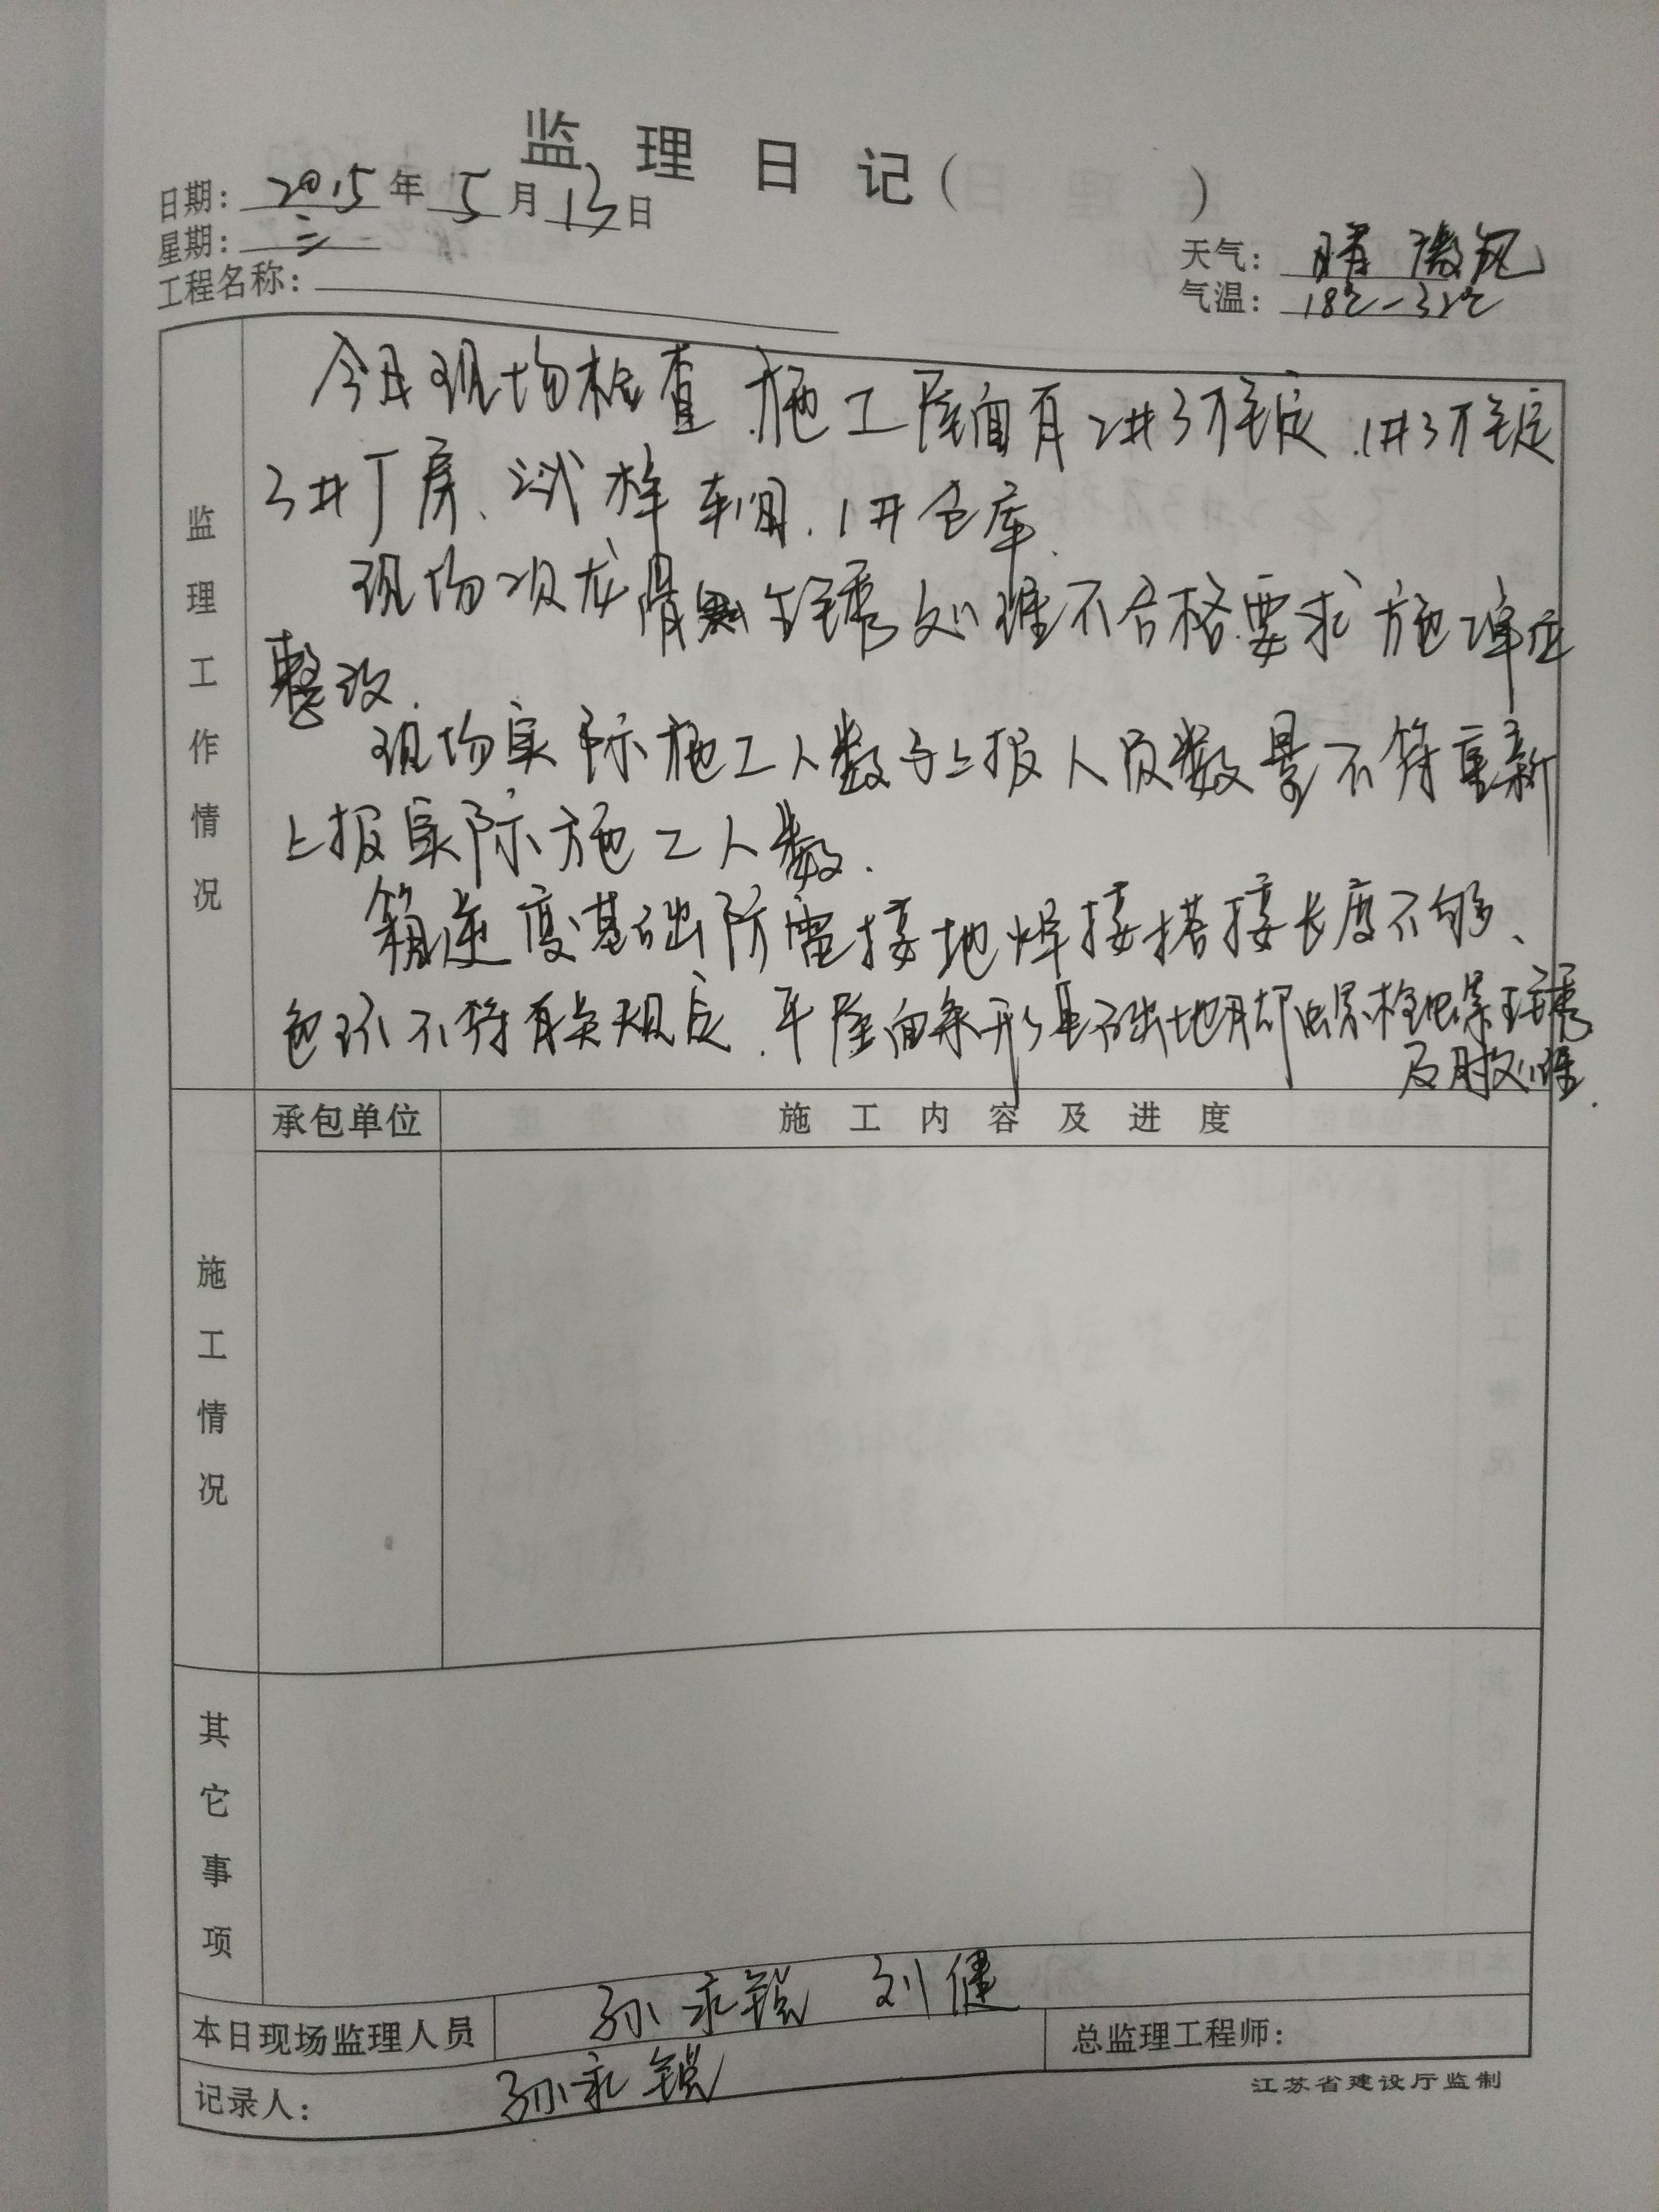 监理日记( )
日期: 2015年5月13日
星期: 三
天气: 晴 微风
工程名称:
气温: 18℃-32℃
监理工作情况
今日现场检查.施工屋面有2#3万锭.1#3万锭
3#厂房、试样车间.1#仓库.
现场次龙骨 生锈处理不合格.要求施工单位
整改.
现场实际施工人数与上报人员数量不符重新
上报实际施工人数.
箱逆变基础防雷接地焊接搭接长度不够、
不符有关规定.平屋面条形基础地脚螺栓螺丝生锈
及时处理.
承包单位
施工内容及进度
施工情况
其它事项
本日现场监理人员
孙永锁 刘健
总监理工程师:
记录人: 孙永锁
江苏省建设厅监制